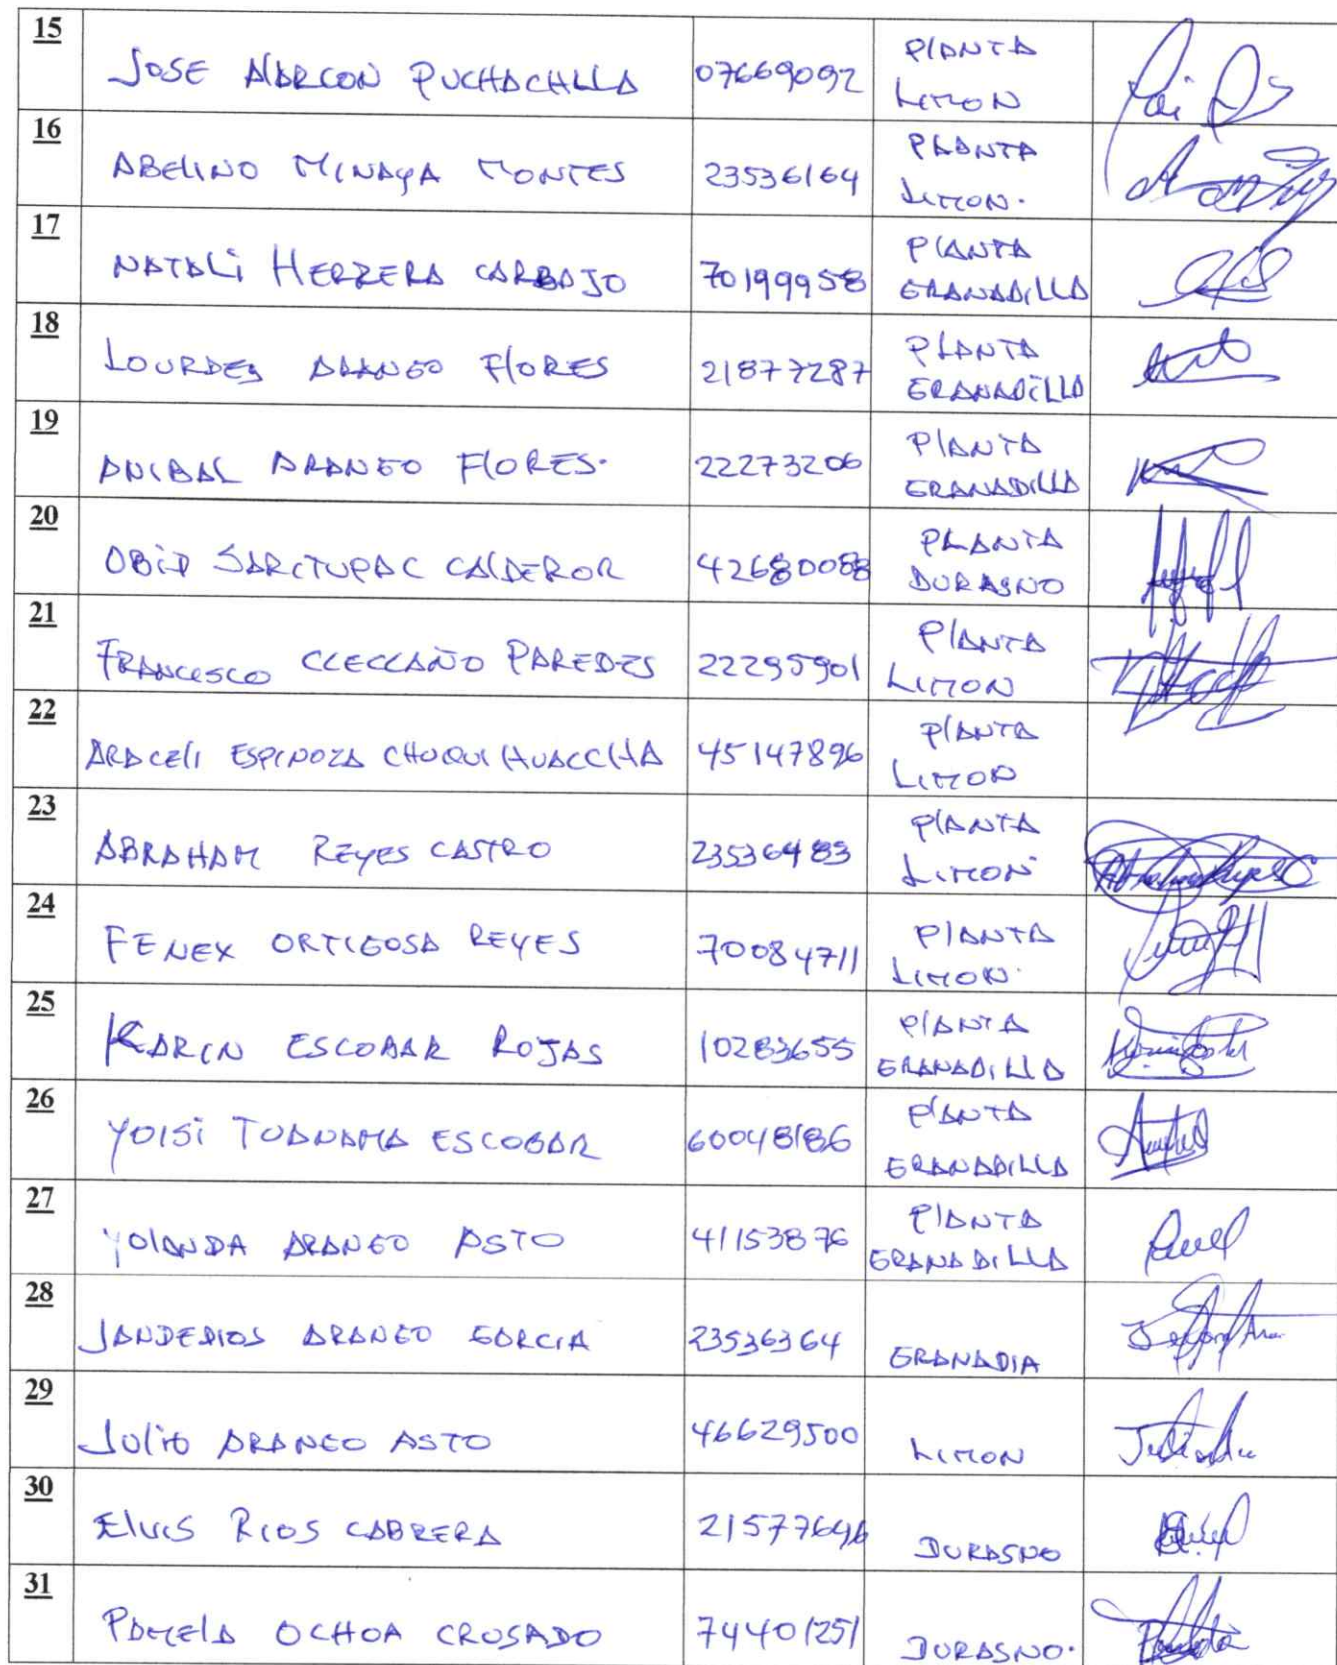 15 JOSE ALARCON PUCHACHLLA 07669092 PLANTA
LIMON
16 ABELINO MINAYA MONTES 23536164 PLANTA
LIMON.
17 NATALI HERRERA CARBAJO 70199958 PLANTA
GRANADILLA
18 LOURDES ARANGO FLORES 21877287 PLANTA
GRANADILLA
19 ANIBAL ARANGO FLORES. 22273206 PLANTA
GRANADILLA
20 OBID SARITUPAC CALDEROR 42680088 PLANTA
DURASNO
21 FRANCESCO CCECCAÑO PAREDES 22295901 PLANTA
LIMON
22 ARACELI ESPINOZA CHUQUIHUACCHA 45147896 PLANTA
LIMON
23 ABRAHAM REYES CASTRO 23536483 PLANTA
LIMON
24 FENEX ORTIGOSA REYES 70084711 PLANTA
LIMON.
25 KARIN ESCOBAR ROJAS 10283655 PLANTA
GRANADILLA
26 YOISI TUANAMA ESCOBAR 60048186 PLANTA
GRANADILLA
27 YOLANDA ARANGO ASTO 41153876 PLANTA
GRANADILLA
28 JANDERIOS ARANGO GARCIA 23536364 GRANADIA
29 JULIO ARANGO ASTO 46629500 LIMON
30 ELVIS RIOS CABRERA DURASNO
31 PAMELA OCHOA CRUSADO 74401251 DURASNO.